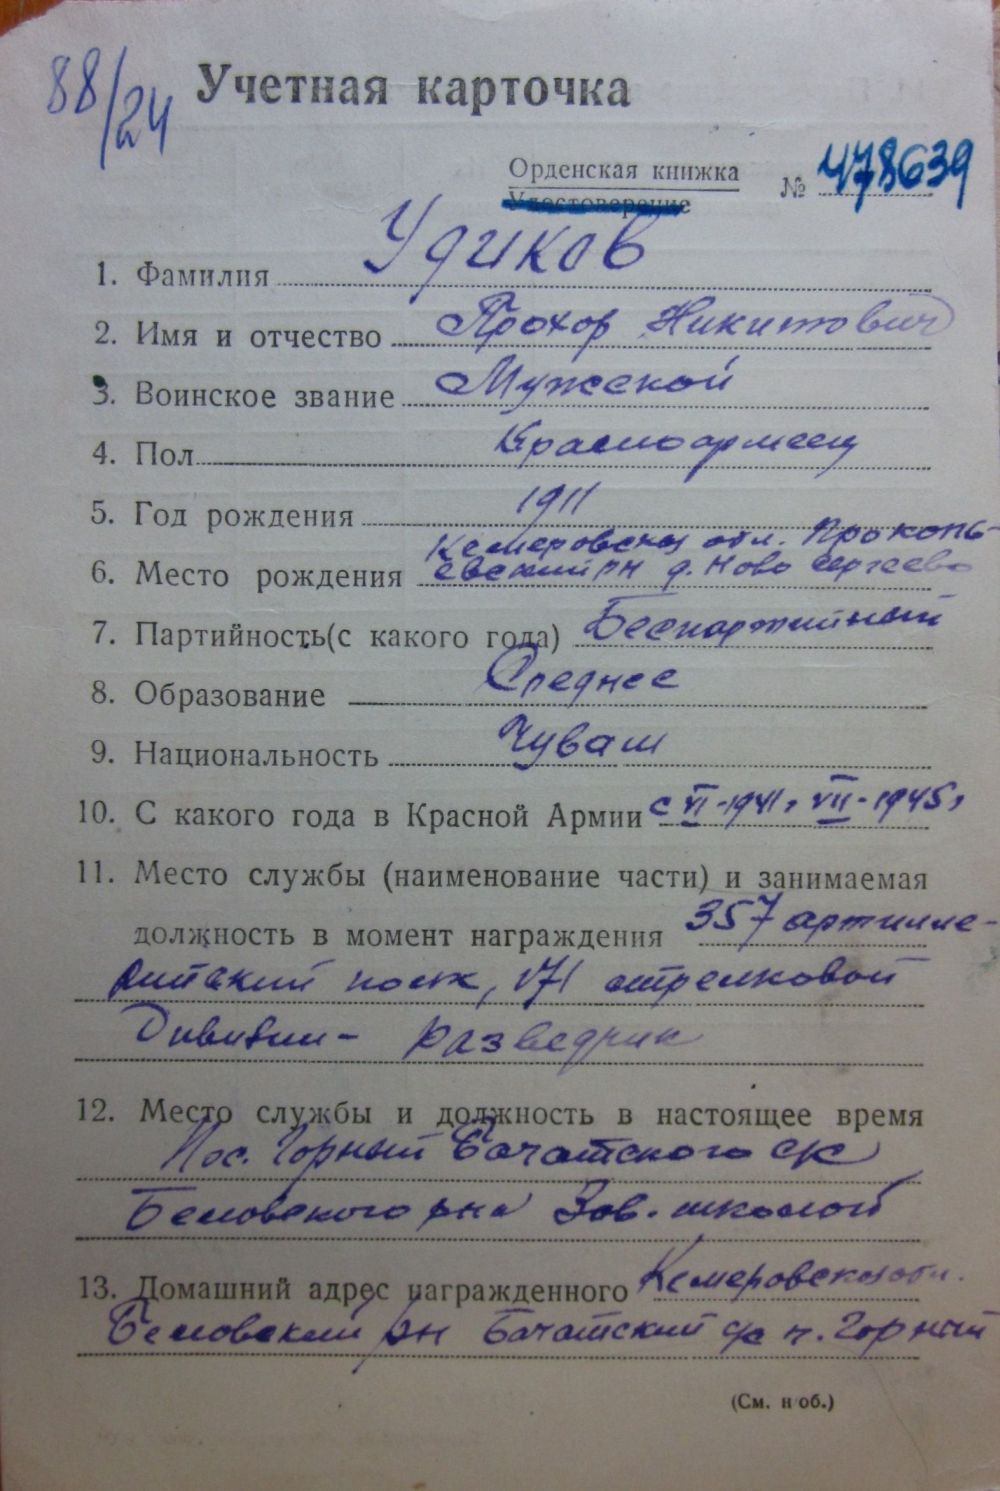 88/24
Учетная карточка
Орденская книжка
Удостоверение
№ 478639
1. Фамилия Удиков
2. Имя и отчество Прохор Никитович
3. Воинское звание Мужской
4. Пол Красноармеец
5. Год рождения 1911
Кемеровская обл. Прокопь-
6. Место рождения евский рн д. Ново Сергеево
7. Партийность(с какого года) Беспартийный
8. Образование Среднее
9. Национальность Чуваш
10. С какого года в Красной Армии с VI-1941, VII-1945,
11. Место службы (наименование части) и занимаемая
должность в момент награждения 357 артилле-
рийский полк, 171 стрелковой
Дивизии - разведчик
12. Место службы и должность в настоящее время
Пос. Горный Бачатского с/с
Беловского рна Зав. школой
13. Домашний адрес награжденного Кемеровская обл.
Беловский рн Бачатский с/с п. Горный
(См. н об.)